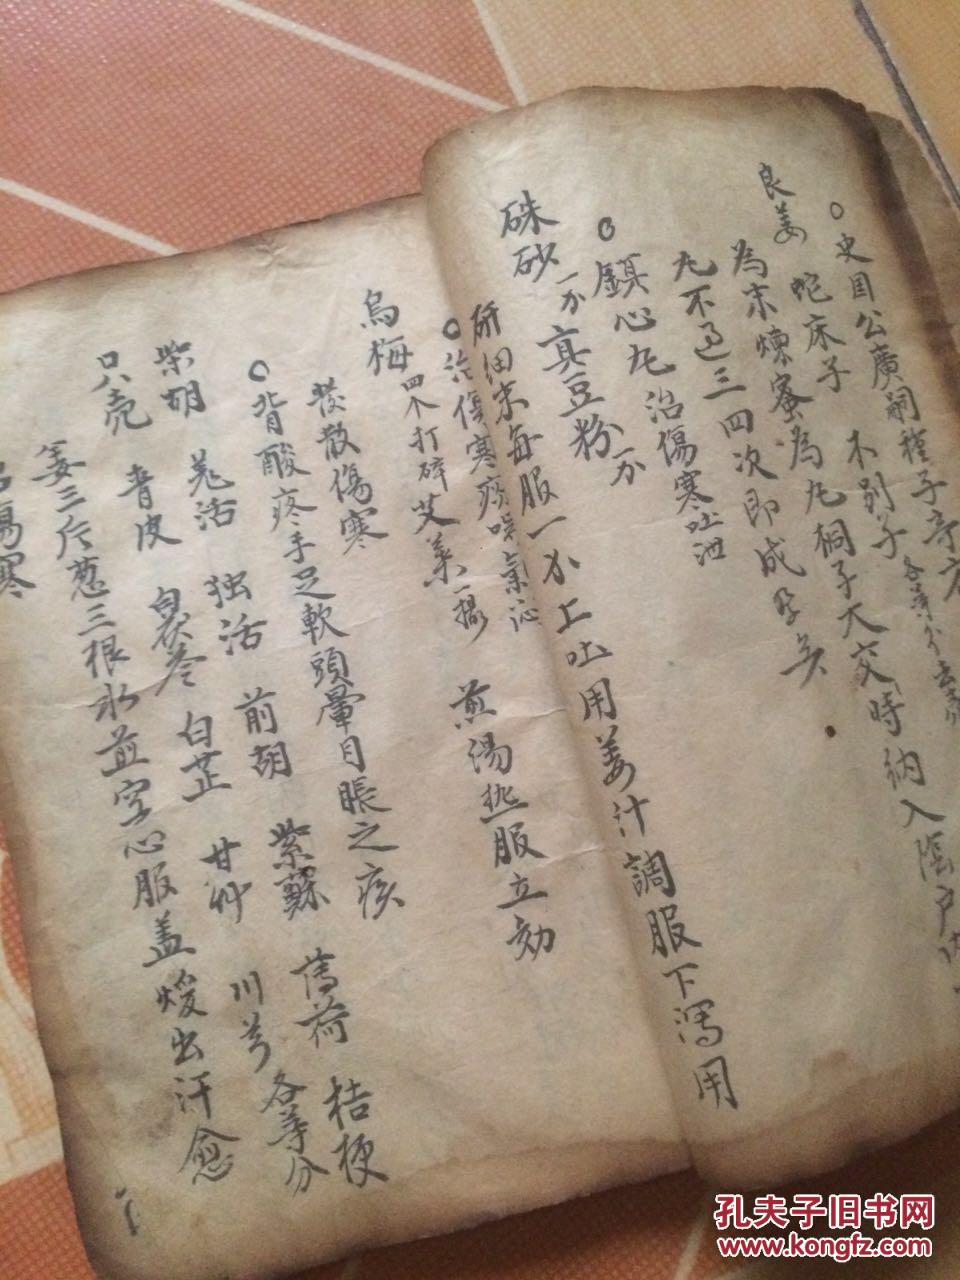 ○史国公廣嗣種子奇方
良姜 蛇床子 木别子 各等分去壳
為末煉蜜為丸桐子大交時納入陰户内
丸不过三四次即成孕矣
○鎮心丸治傷寒吐泄
硃砂 一分 真豆粉 一分
研细末每服一分上吐用姜汁調服下瀉用
○治傷寒
烏梅 四个打碎艾葉一撮 煎湯热服立効
發散傷寒
○背酸疼手足軟頭暈目脹之疾
柴胡 羌活 独活 前胡 紫蘇 薄荷 桔梗
只壳 青皮 白茯苓 白芷 甘艸 川芎 各等分
姜三斤葱三根水煎空心服盖煖出汗愈
傷寒
孔夫子旧书网
www.kongfz.com